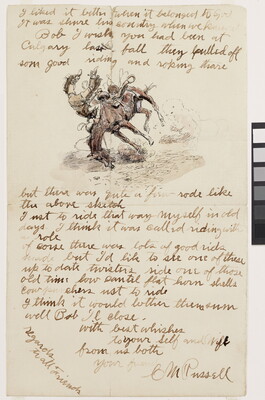 I liked it better
it was shure
Bob I wish you had been at
Calgary last fall they pulled off
som good riding and roping there
but there was quite a fiew rode like
the above sketch
I ust to ride that way myself in old
days I think it was called riding with
role
of corse there was lots of good rids
made but Id like to see one of these
up to date twisters ride one of those
old time low cantel flat horn shells
cow ust to ride
I think it would bother them som
well Bob Il close
with best whishes
to your self and wife
from us both
your
CM Russell
regards
to all friends